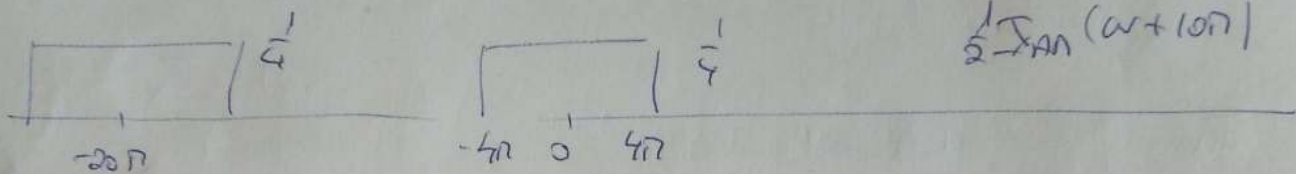 1/4 1/4 1/2 (ω+10π)
-20π -4π 0 4π